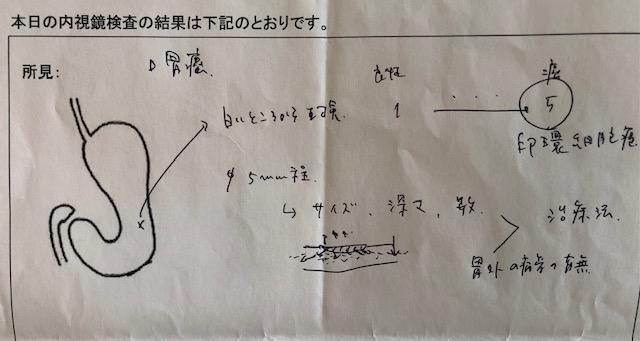 本日の内視鏡検査の結果は下記のとおりです。
所見:
胃癌
良性
癌
白いところから
1
5
印環細胞癌
φ 5mm程
↳ サイズ、深さ、数
治療法
胃外の病変の有無